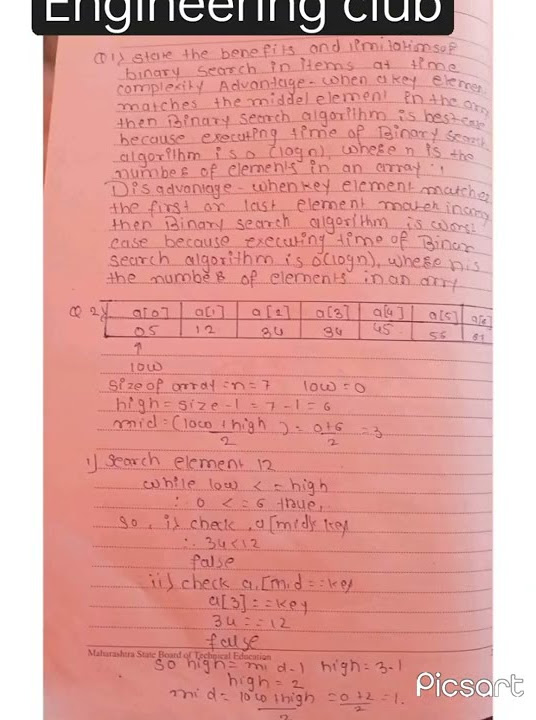 Engineering club
Q 1) state the benefits and limitations of
binary search in items at time
complexity Advantage - when a key elemen
matches the middel element in the array
then Binary search algorithm is best case
because executing time of Binary search
algorithm is o (logn), where n is the
number of elements in an array.
Disadvantage - when key element matches
the first or last element match in array
then Binary search algorithm is worst
case because executing time of Binar
search algorithm is o(logn), where n is
the number of elements in an arry
Q 2) a[0] a[1] a[2] a[3] a[4] a[5] a[6]
05 12 34 34 45 56 67
↑
low
size of array = n = 7 low = 0
high = size - 1 = 7 - 1 = 6
mid = (low + high)/2 = 0+6/2 = 3
i) search element 12
while low < = high
∴ 0 < = 6 true,
so, i) check, a[mid] < key
∴ 34 < 12
false
ii) check a[mid == key
a[3] == key
34 == 12
false
Maharashtra State Board of Technical Education
so high = mid - 1 high = 3 - 1
high = 2
mid = low + high/2 = 0 + 2/2 = 1.
Picsart